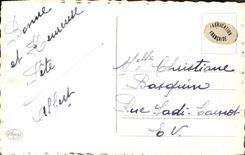 Bonne
et Heureuse
Fête
Albert
FABRICATION
FRANÇAISE
Melle Christiane
Basquin
Rue Sadi-Carnot
E V